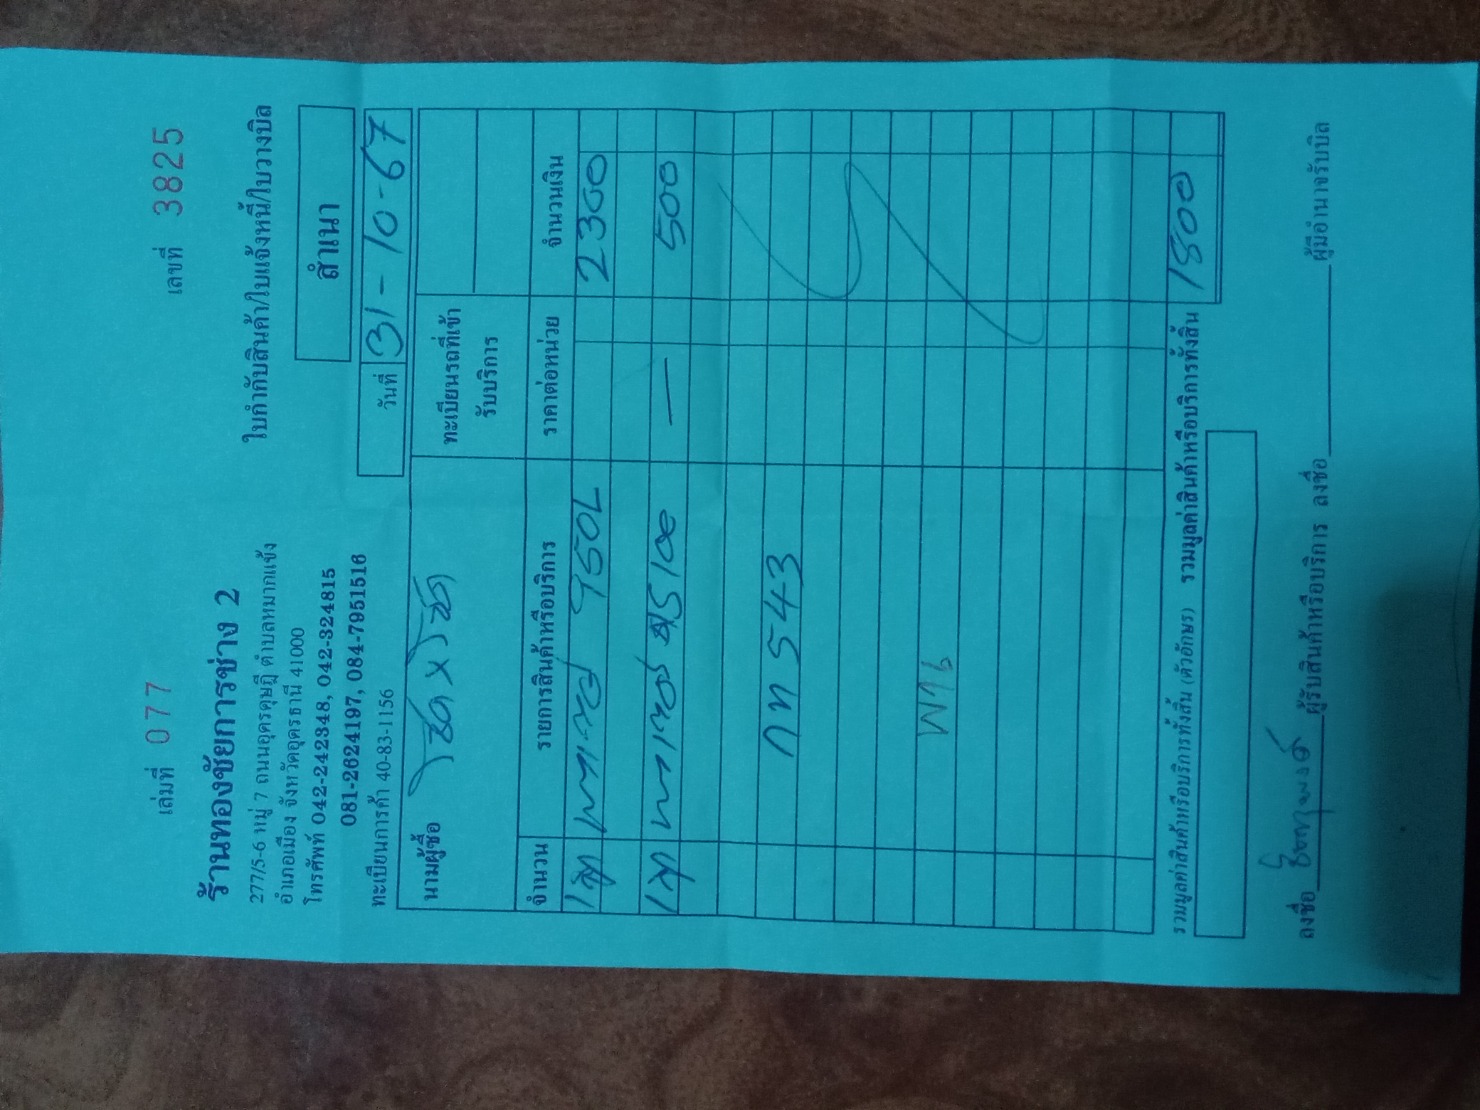 เล่มที่ 077 เลขที่ 3825
ร้านทองชัยการช่าง 2
277/5-6 หมู่ 7 ถนนอุดรดุษฎี ตำบลหมากแข้ง
อำเภอเมือง จังหวัดอุดรธานี 41000
โทรศัพท์ 042-242348, 042-324815
081-2624197, 084-7951516
ทะเบียนการค้า 40-83-1156
ใบกำกับสินค้า/ใบแจ้งหนี้/ใบวางบิล
สำเนา
วันที่ 31-10-67
นามผู้ซื้อ
ทะเบียนรถที่เข้า
รับบริการ
จำนวน รายการสินค้าหรือบริการ ราคาต่อหน่วย จำนวนเงิน
950L 2300
510e — 500
กท 543
รวมมูลค่าสินค้าหรือบริการทั้งสิ้น (ตัวอักษร) รวมมูลค่าสินค้าหรือบริการทั้งสิ้น 1800
ลงชื่อ ผู้รับสินค้าหรือบริการ ลงชื่อ ผู้มีอำนาจรับบิล